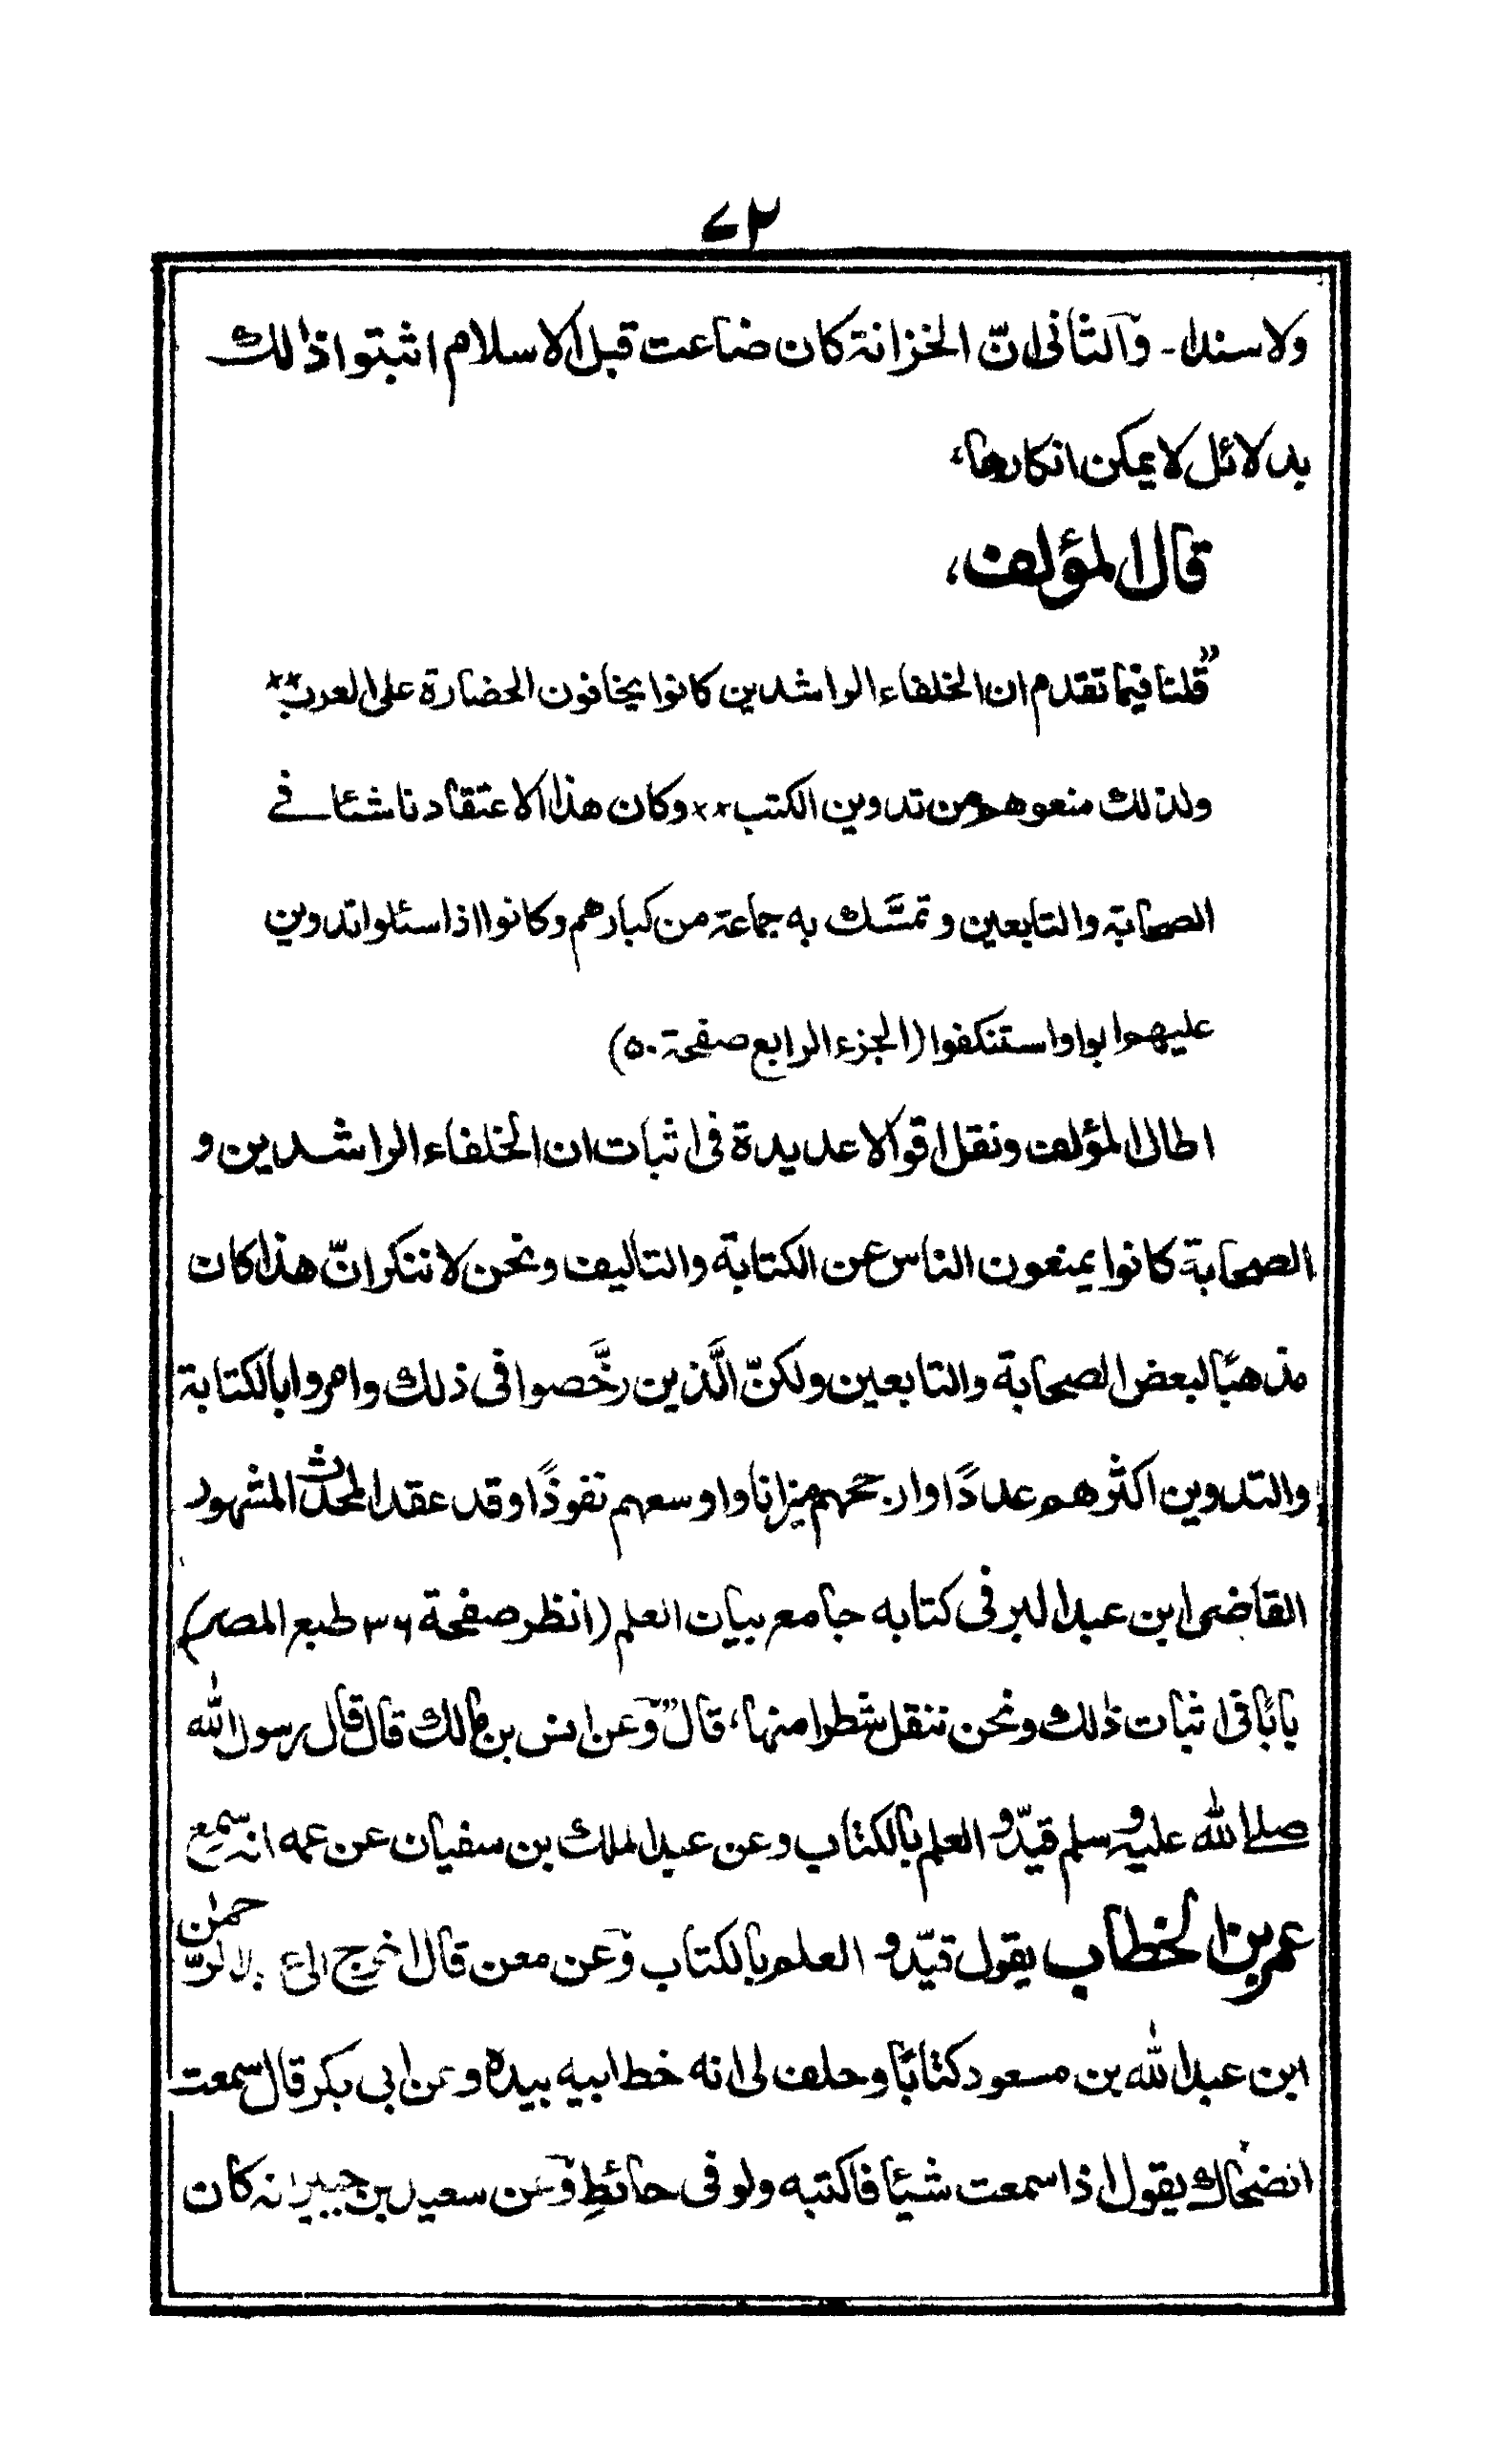 ۷۲
ولا سندا۔ والثانی انّ الخزانة کان ضاعت قبل الاسلام اثبتوا ذالك
بدلائل لا یمکن انکارها،
قال المؤلف،
”قلنا فیما تقدم ان الخلفاء الراشدین کانوا یخافون الحضارة علی العرب××
ولذلك منعوهم من تدوین الکتب××وکان هذا الاعتقاد ناشئا فے
الصحابة والتابعین وتمسَّك به جماعة من کبارهم وکانوا اذا سئلوا تدوین
علیهم ابوا واستنکفوا (الجزء الرابع صفحة ۵۰)
اطال المؤلف ونقل اقوالا عدیدة فی اثبات ان الخلفاء الراشدین و
الصحابة کانوا یمنعون الناس عن الکتابة والتالیف ونحن لا ننکر انّ هذا کان
مذهبًا لبعض الصحابة والتابعین ولکنّ الَّذین رخَّصوا فی ذلك وامروا بالکتابة
والتدوین اکثرهم عددًا وارجحهم میزانا واوسعهم نفوذًا وقد عقد المحدث المشهور
القاضی ابن عبد البر فی کتابه جامع بیان العلم (انظر صفحة ۳۶ طبع المصر)
بابًا فی اثبات ذلك ونحن ننقل شطرا منها، قال ”وعن انس بن مالك قال قال رسول الله
صلے الله علیه وسلم قیّدو العلم بالکتاب وعن عبد الملك بن سفیان عن عمه انه سمع
عمر بن الخطاب یقول قیّدو العلم بالکتاب وعن معن قال اخرج الیّ عبد الرّحمٰن
ابن عبد الله بن مسعود کتابًا وحلف لی انه خط ابیه بیده وعن ابی بکر قال سمعت
الضحاك یقول اذا سمعت شیئًا فاکتبه ولو فی حائطٍ وعن سعید بن جبیر انه کان